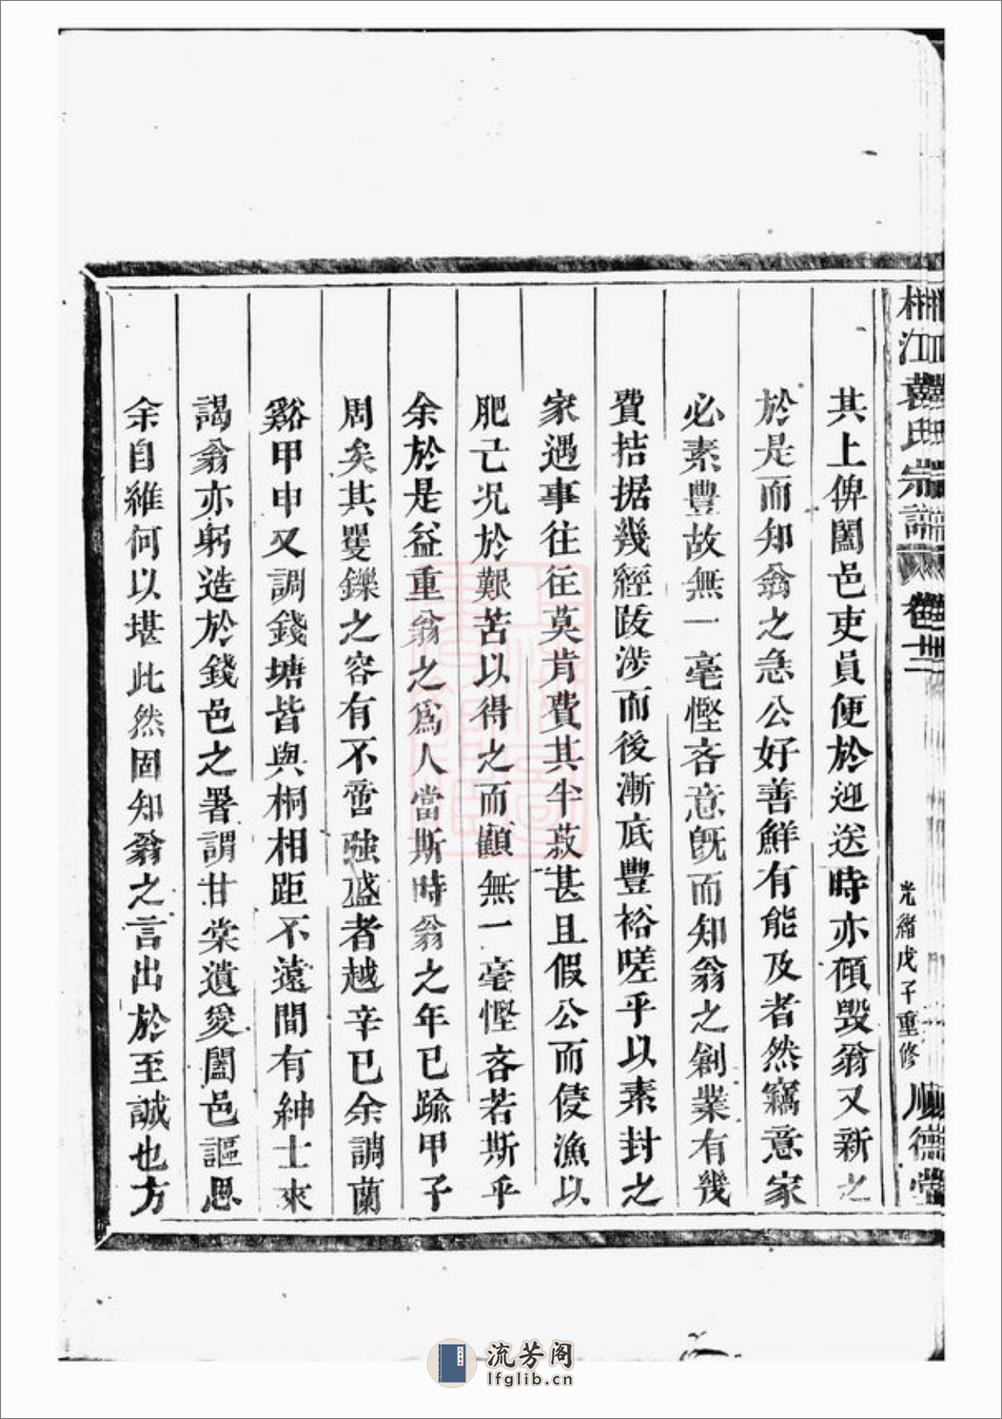 桐江袁氏宗譜
光緒戊子重修
順德堂
其上俾闔邑吏員便於迎送時亦傾毀翁又新之
於是而知翁之急公好善鮮有能及者然竊意家
必素豐故無一毫慳吝意既而知翁之創業有幾
費拮据幾經跋涉而後漸底豐裕嗟乎以素封之
家遇事往往莫肯費其半菽甚且假公而侵漁以
肥己况於艱苦以得之而顧無一毫慳吝若斯乎
余於是益重翁之為人當斯時翁之年已踰甲子
周矣其矍鑠之容有不啻強盛者越辛巳余調蘭
谿甲申又調錢塘皆與桐相距不遠間有紳士來
謁翁亦躬造於錢邑之署謂甘棠遺愛闔邑謳思
余自維何以堪此然固知翁之言出於至誠也方
流芳阁
lfglib.cn